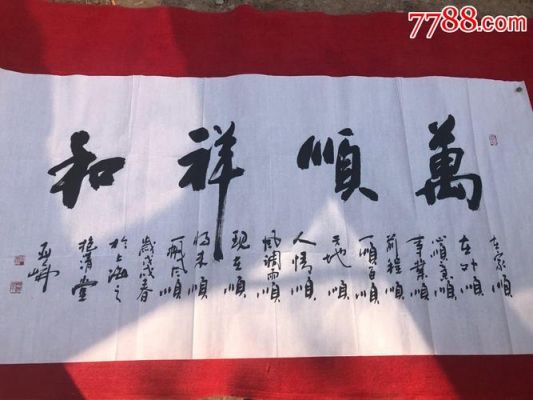 7788.com
萬順祥和
在家順
在外順
事業順
前程順
一順百順
天地順
人情順
風調雨順
現在順
將來順
一帆風順
歲戊戌春
於上海之
清堂